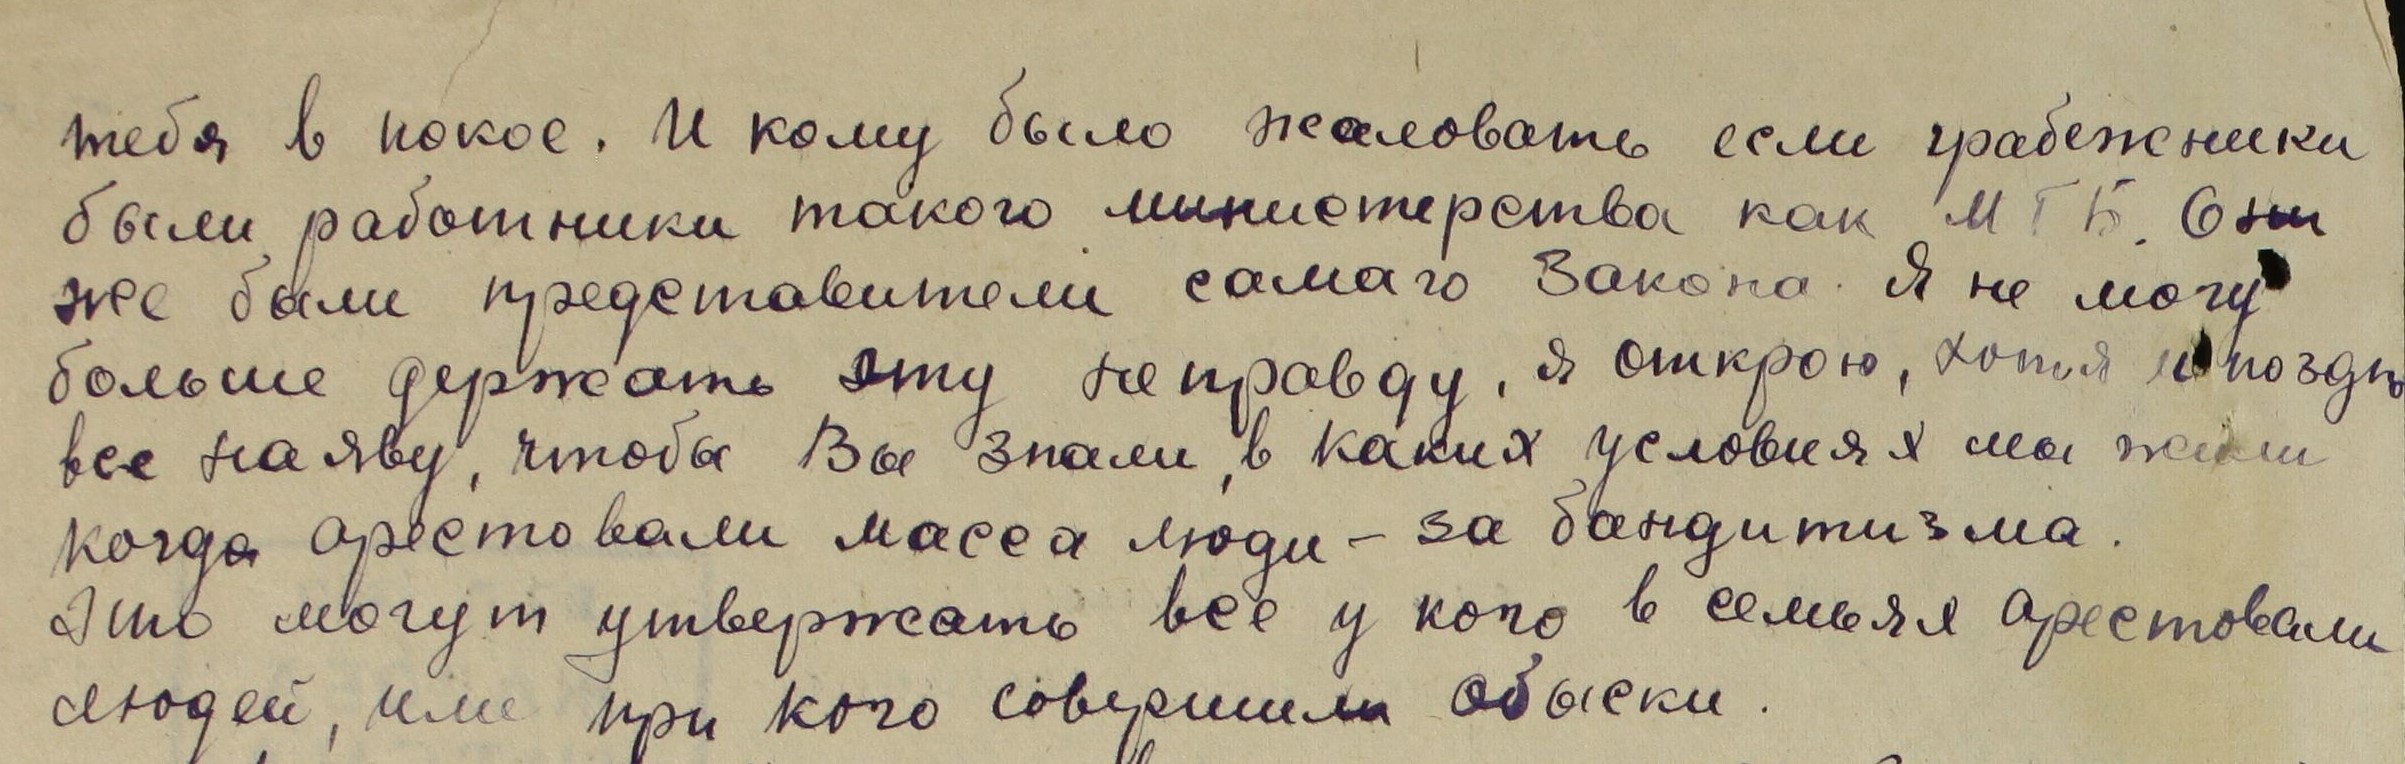 тебя в покое. И кому было жаловать если грабежники
были работники такого министерства как МГБ. Они
же были представители самаго Закона. Я не могу
больше держать эту неправду, я открою, хотя и поздно
все наяву, чтобы Вы знали, в каких условиях мы жили
когда арестовали масса люди – за бандитизма.
Это могут утвержать все у кого в семьях арестовали
людей, или при кого совершили обыски.